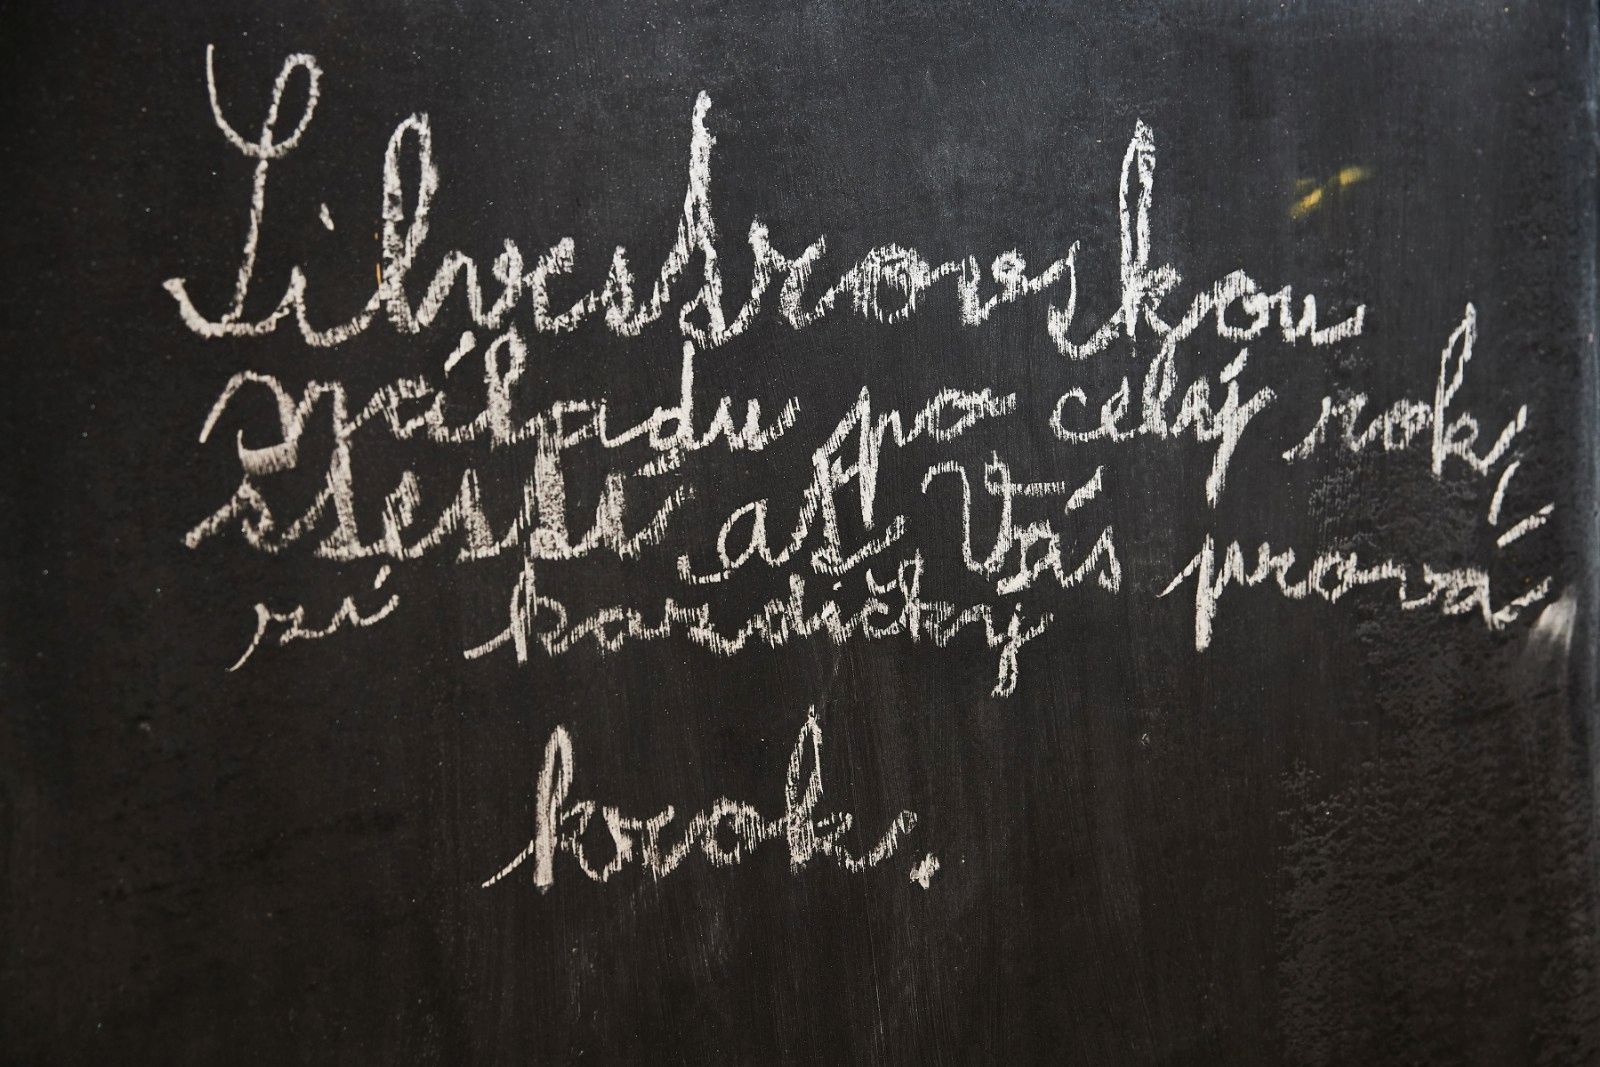 Silvestrovskou
náladu po celý rok,
stestí, ať Vás prová
zí kazdičký
krok.